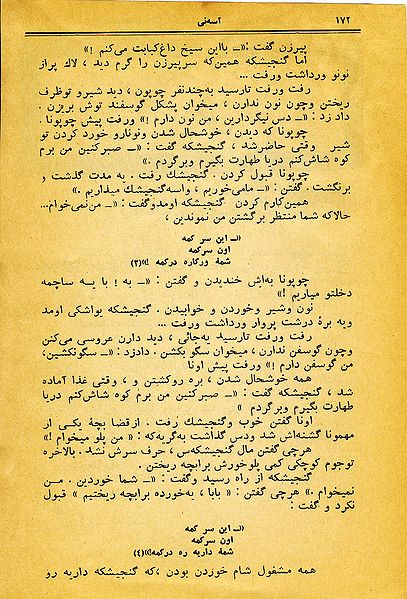 ۱۷۲
آسه‌نی
پیرزن گفت : «ــ بااین سیخ داغ‌کبابت می‌کنم !»
اما گنجیشکه همین‌که سرپیرزن را گرم دید ، لاك پراز
نونو ورداشت ورفت ...
رفت ورفت تارسید به‌چندنفر چوپون ، دید شیرو توظرف
ریختن وچون نون ندارن ، میخوان پشکل گوسفند توش بریزن .
داد زد : «ــ دس نیگردارین ، من نون دارم !» ورفت پیش چوپونا .
چوپونا که دیدن ، خوشحال شدن ونونارو خورد کردن تو
شیر وقتی حاضرشد ، گنجیشکه گفت : «ــ صبرکنین من برم
کوه شاش‌کنم دریا طهارت بگیرم وبرگردم .»
چوپونا قبول کردن . گنجیشك رفت . یه مدت گذشت و
برنگشت . گفتن : «ــ مامی‌خوریم ، واسه‌گنجیشك میذاریم .»
همین‌کارم کردن گنجیشکه اومدوگفت : «ــ من‌نمی‌خوام...
حالاکه شما منتظر برگشتن من نموندین ،
«ــ این سر کمه
اون سرکمه
شمهٔ ورکاره درکمه !»(۳)
چوپونا به‌اش خندیدن و گفتن : «ــ به ! با یـه ساجمه
دخلتو میاریم !»
نون وشیر وخوردن و خوابیدن . گنجیشکه یواشکی اومد
ویه برهٔ درشت پروار ورداشت ورفت ...
رفت ورفت تارسید به‌جائی ، دید دارن عروسی می‌کنن
وچون گوسفن ندارن ، میخوان سگو بکشن . دادزد : «ــ سگونکشین،
من گوسفن دارم !» ورفت پیش اونا
همه خوشحال شدن ، بره روکشتن و ، وقتی غذا آماده
شد ، گنجیشکه گفت : «ــ صبرکنین من برم کوه شاش‌کنم دریا
طهارت بگیرم وبرگردم »
اونا گفتن خوب وگنجیشك رفت . ازقضا بچهٔ یکی از
مهمونا گشنه‌اش شد ودس گذاشت به‌گریه‌که : « من پلو میخوام !»
هرچی گفتن مال گنجیشکه‌س ، حرف سرش نشد . بالاخره
توجوم کوچکی کمی پلوخورش برابچه ریختن .
گنجیشکه از راه رسید وگفت : «ــ شما خوردین . مـن
نمیخوام .» هرچی گفتن : « بابا ، یه‌خورده برابچه ریختیم » قبول
نکرد و گفت :
«ــ این سر کمه
اون سرکمه
شمهٔ داریه ره درکمه!»(۴)
همه مشغول شام خوزدن بودن ،که گنجیشکه داریه رو